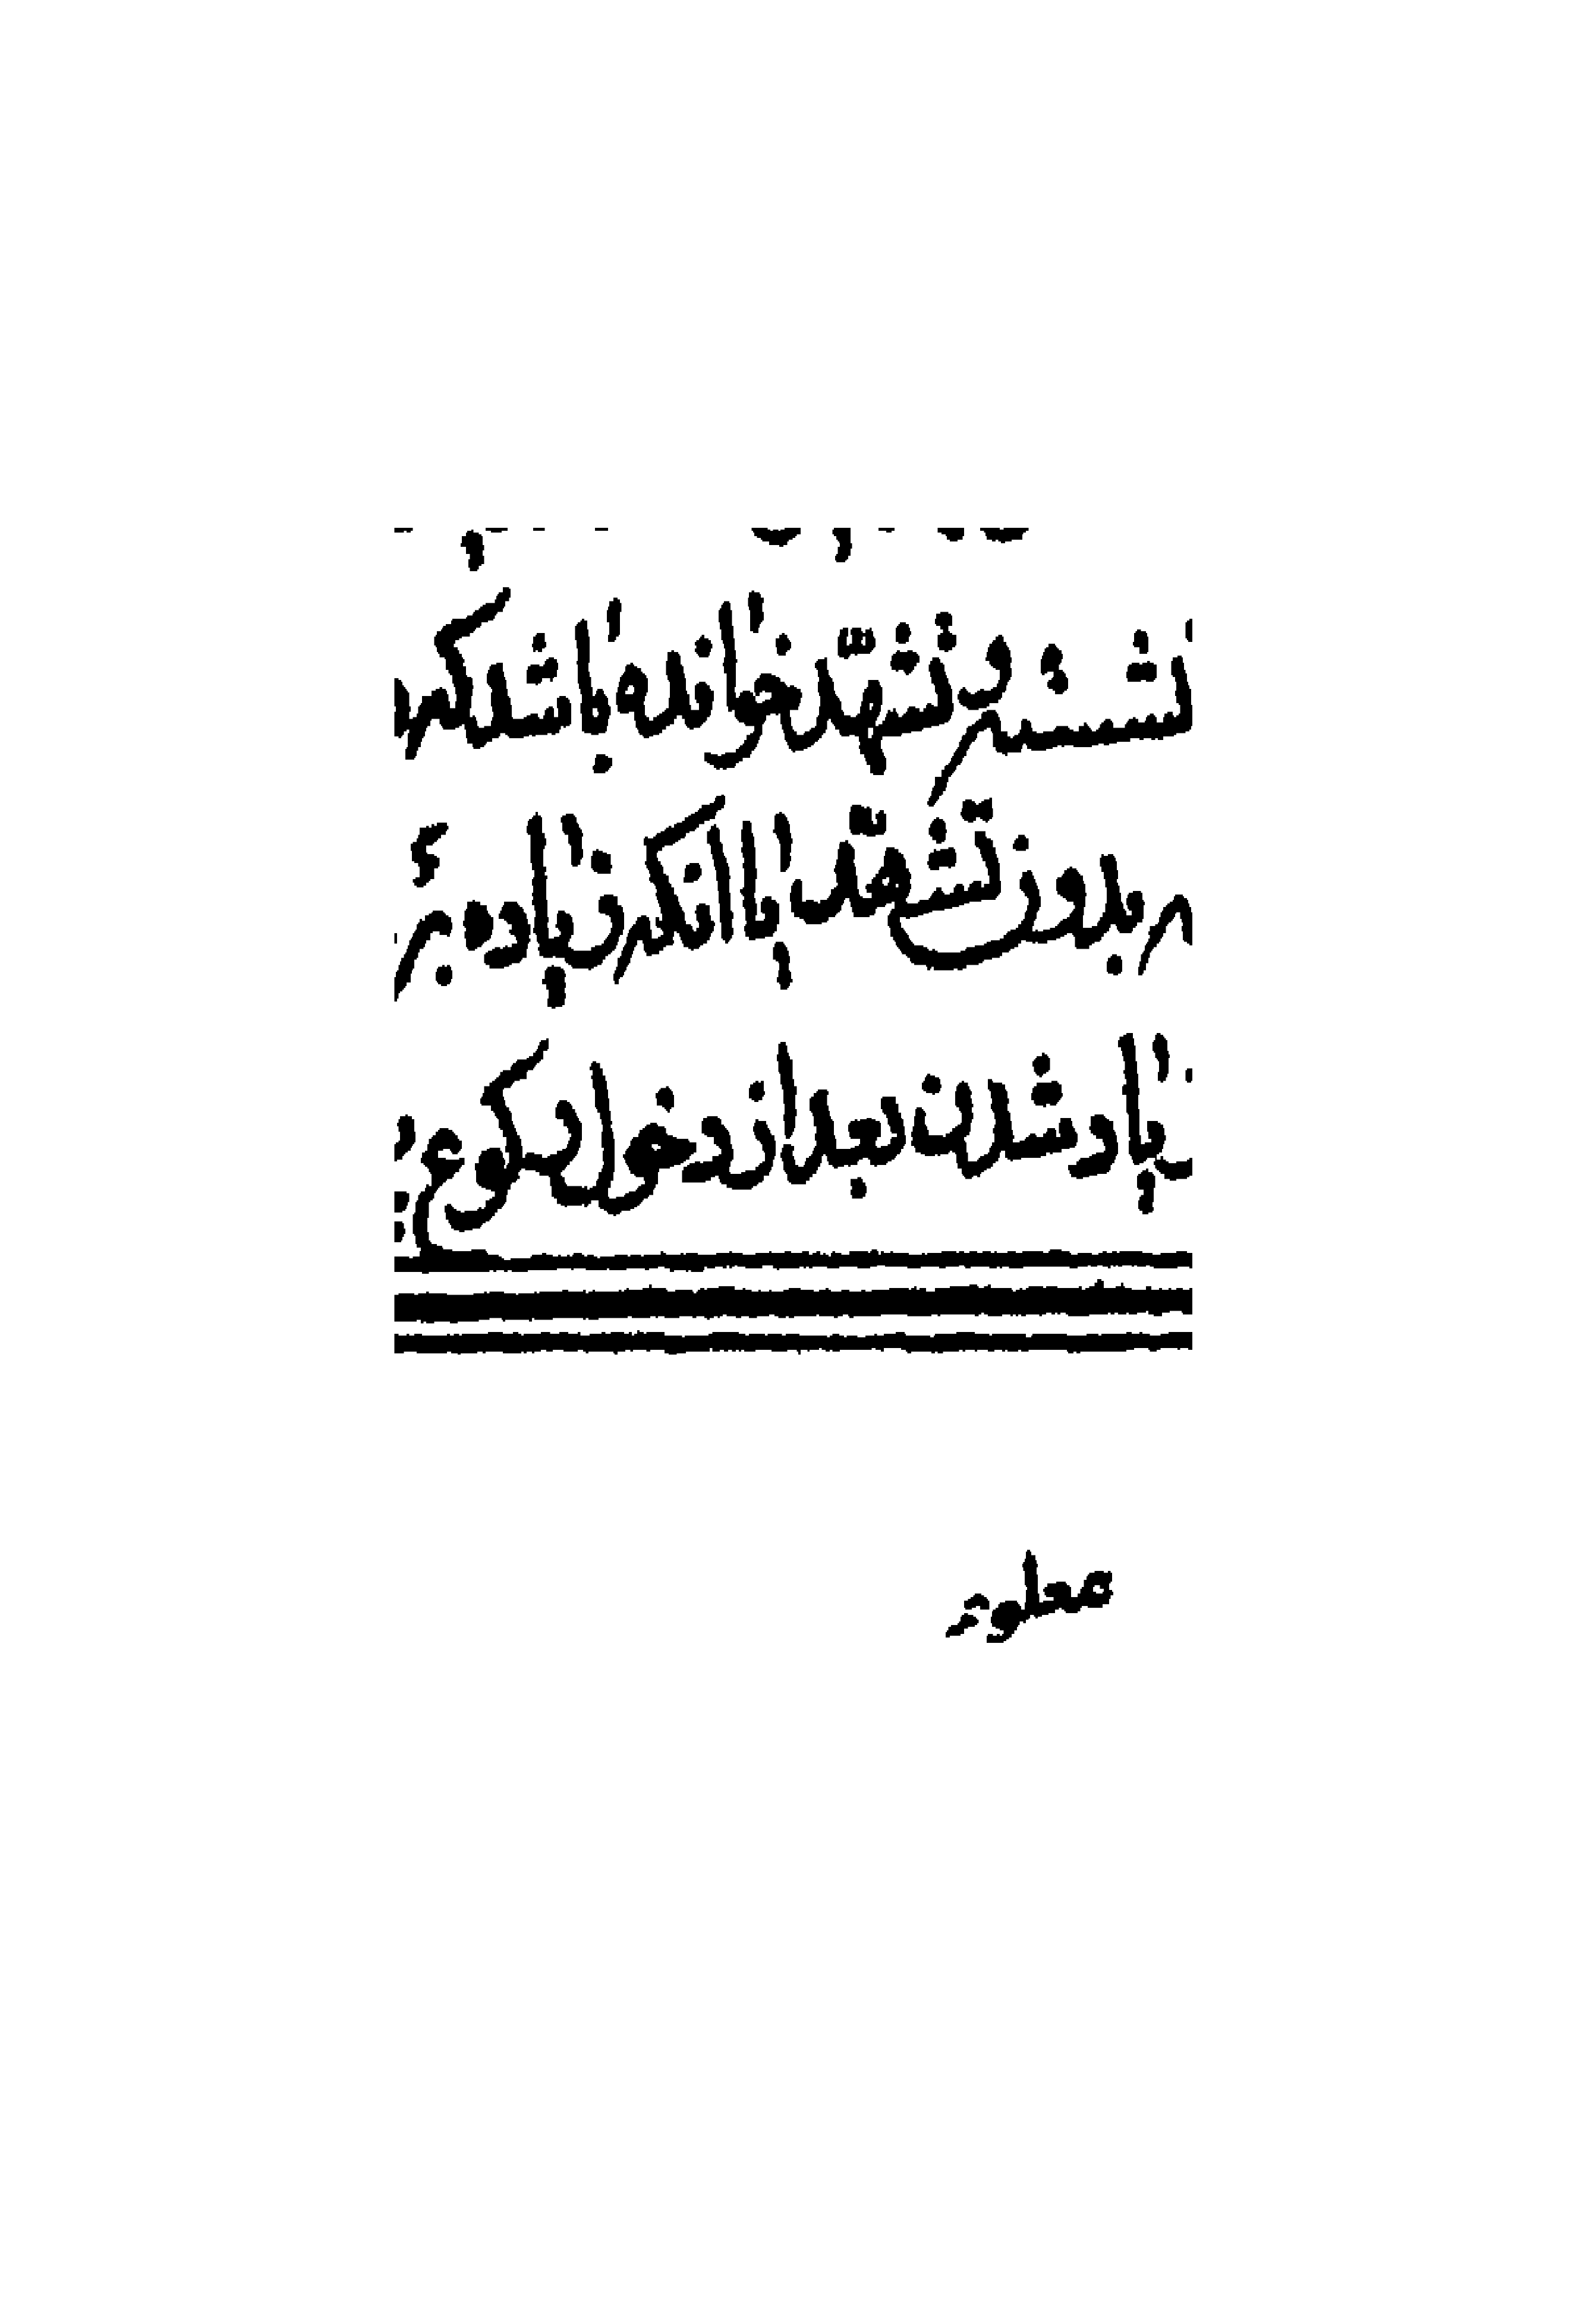 نشسته و تشهّد خوانده باشد که
بدون تشهّد یا انکه زیاده بر
یاد شدن بعد از دخول رکوع
معلوم